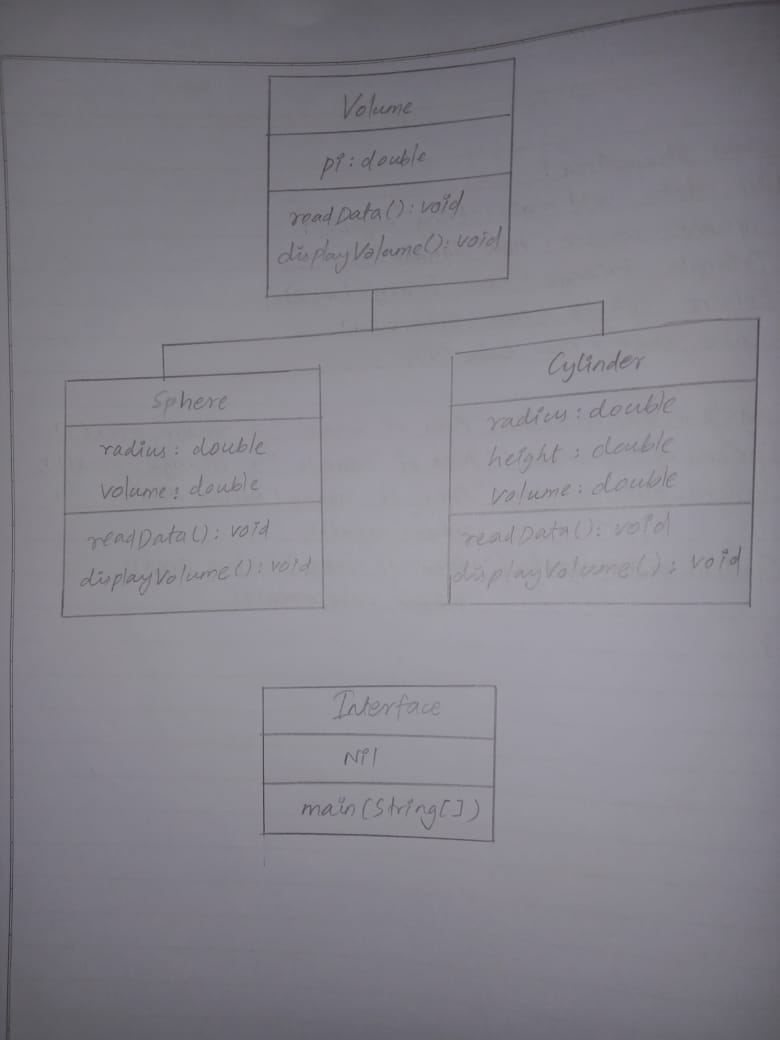 Volume
pi : double
readData() : void
displayVolume() : void
Sphere
radius : double
volume : double
readData() : void
displayVolume() : void
Cylinder
radius : double
height : double
volume : double
readData() : void
displayVolume() : void
Interface
Nil
main(String[])